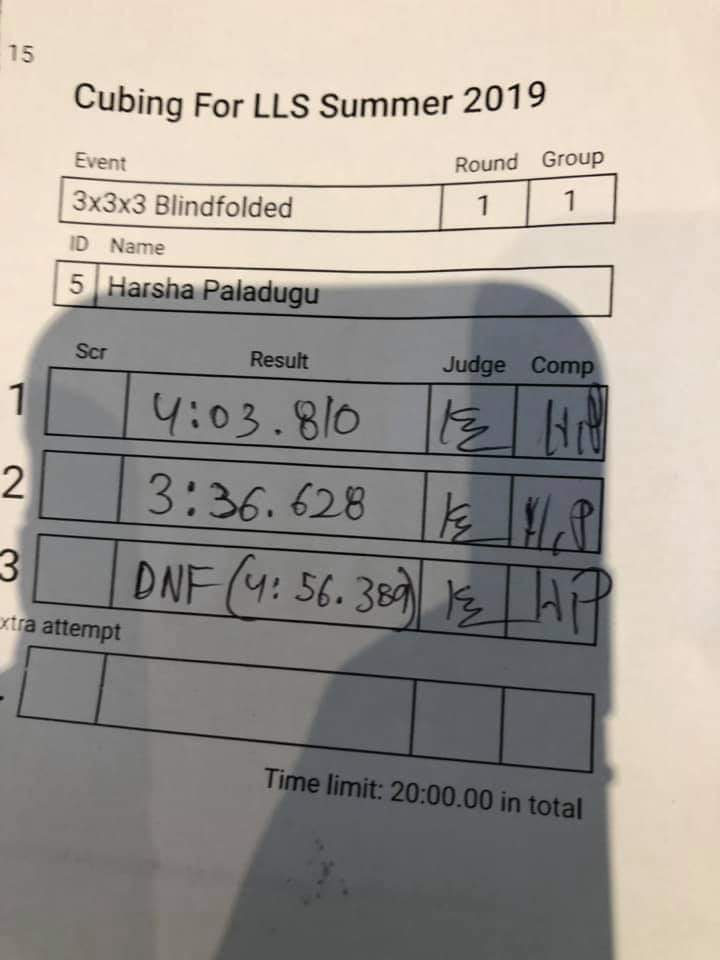 15
Cubing For LLS Summer 2019
Event Round Group
3x3x3 Blindfolded 1 1
ID Name
5 Harsha Paladugu
Scr Result Judge Comp
1 4:03.810 HP
2 3:36.628 H.P
3 DNF (4:56.389) HP
xtra attempt
Time limit: 20:00.00 in total